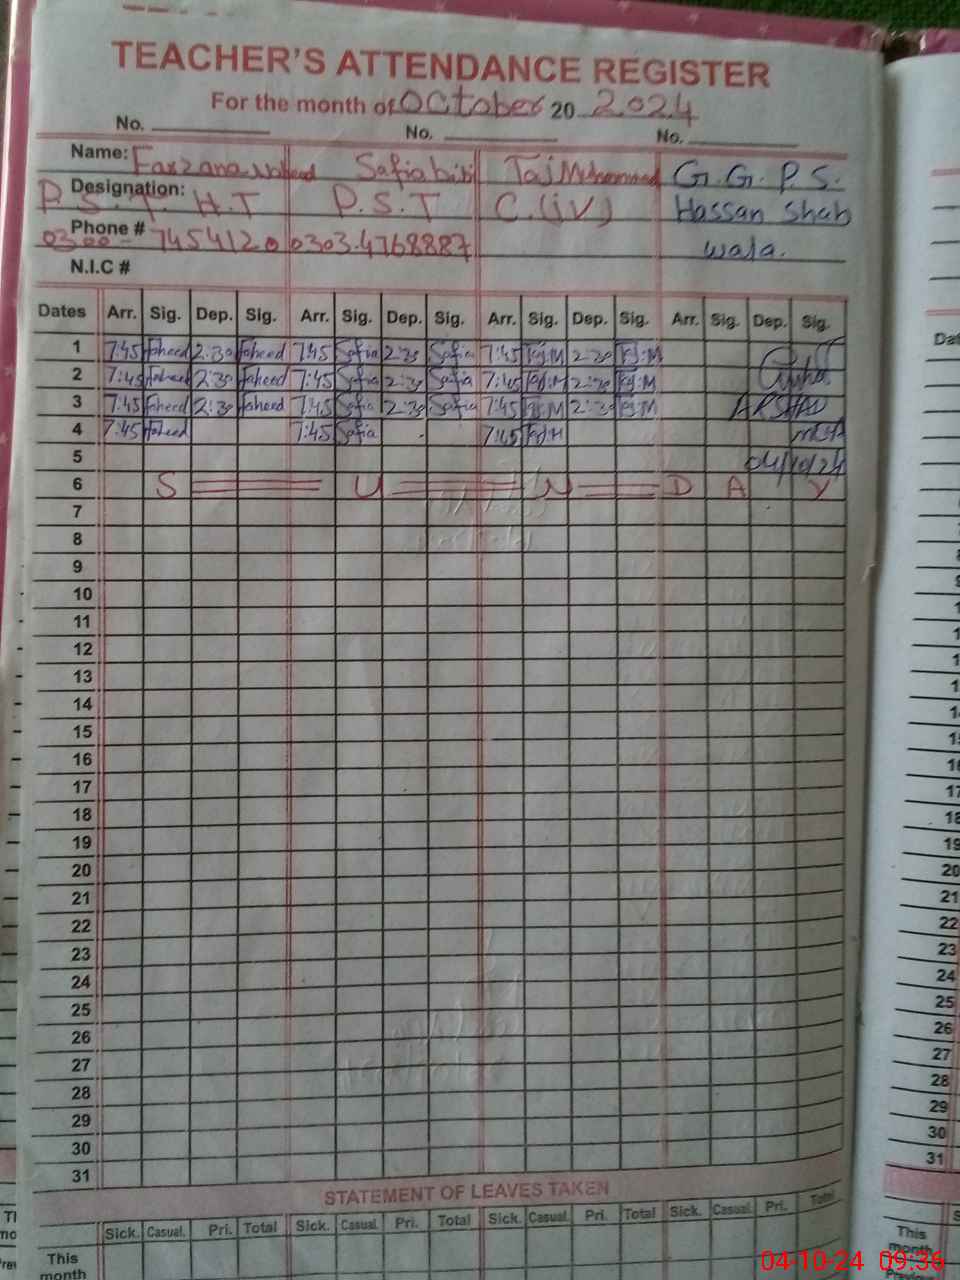 TEACHER'S ATTENDANCE REGISTER
For the month of October 20 2024
No. No. No.
Name: Farzana Waheed Safia bibi Taj Muhammad G.G.P.S.
Designation: P.S.T. H.T P.S.T C.(iV) Hassan Shah
Phone # 0300-7454120 0303.4768887 wala.
N.I.C #
Dates Arr. Sig. Dep. Sig. Arr. Sig. Dep. Sig. Arr. Sig. Dep. Sig. Arr. Sig. Dep. Sig.
1 7:45 Faheed 2:30 Faheed 7:45 Safia 2:30 Safia 7:45 Taj.M 2:30 Taj.M
2 7:45 Faheed 2:30 Faheed 7:45 Safia 2:30 Safia 7:45 Taj.M 2:30 Taj.M
3 7:45 Faheed 2:30 Faheed 7:45 Safia 2:30 Safia 7:45 Taj.M 2:30 Taj.M ARSHAD
4 7:45 Faheed 7:45 Safia 7:45 Taj.M
5 04/10/24
6 S U N D A Y
7
8
9
10
11
12
13
14
15
16
17
18
19
20
21
22
23
24
25
26
27
28
29
30
31
STATEMENT OF LEAVES TAKEN
Sick. Casual. Pri. Total Sick. Casual. Pri. Total Sick. Casual. Pri. Total Sick. Casual. Pri. Total
This
month
19
20
21
22
23
24
25
26
27
28
29
30
31
This
month
04-10-24 09:36